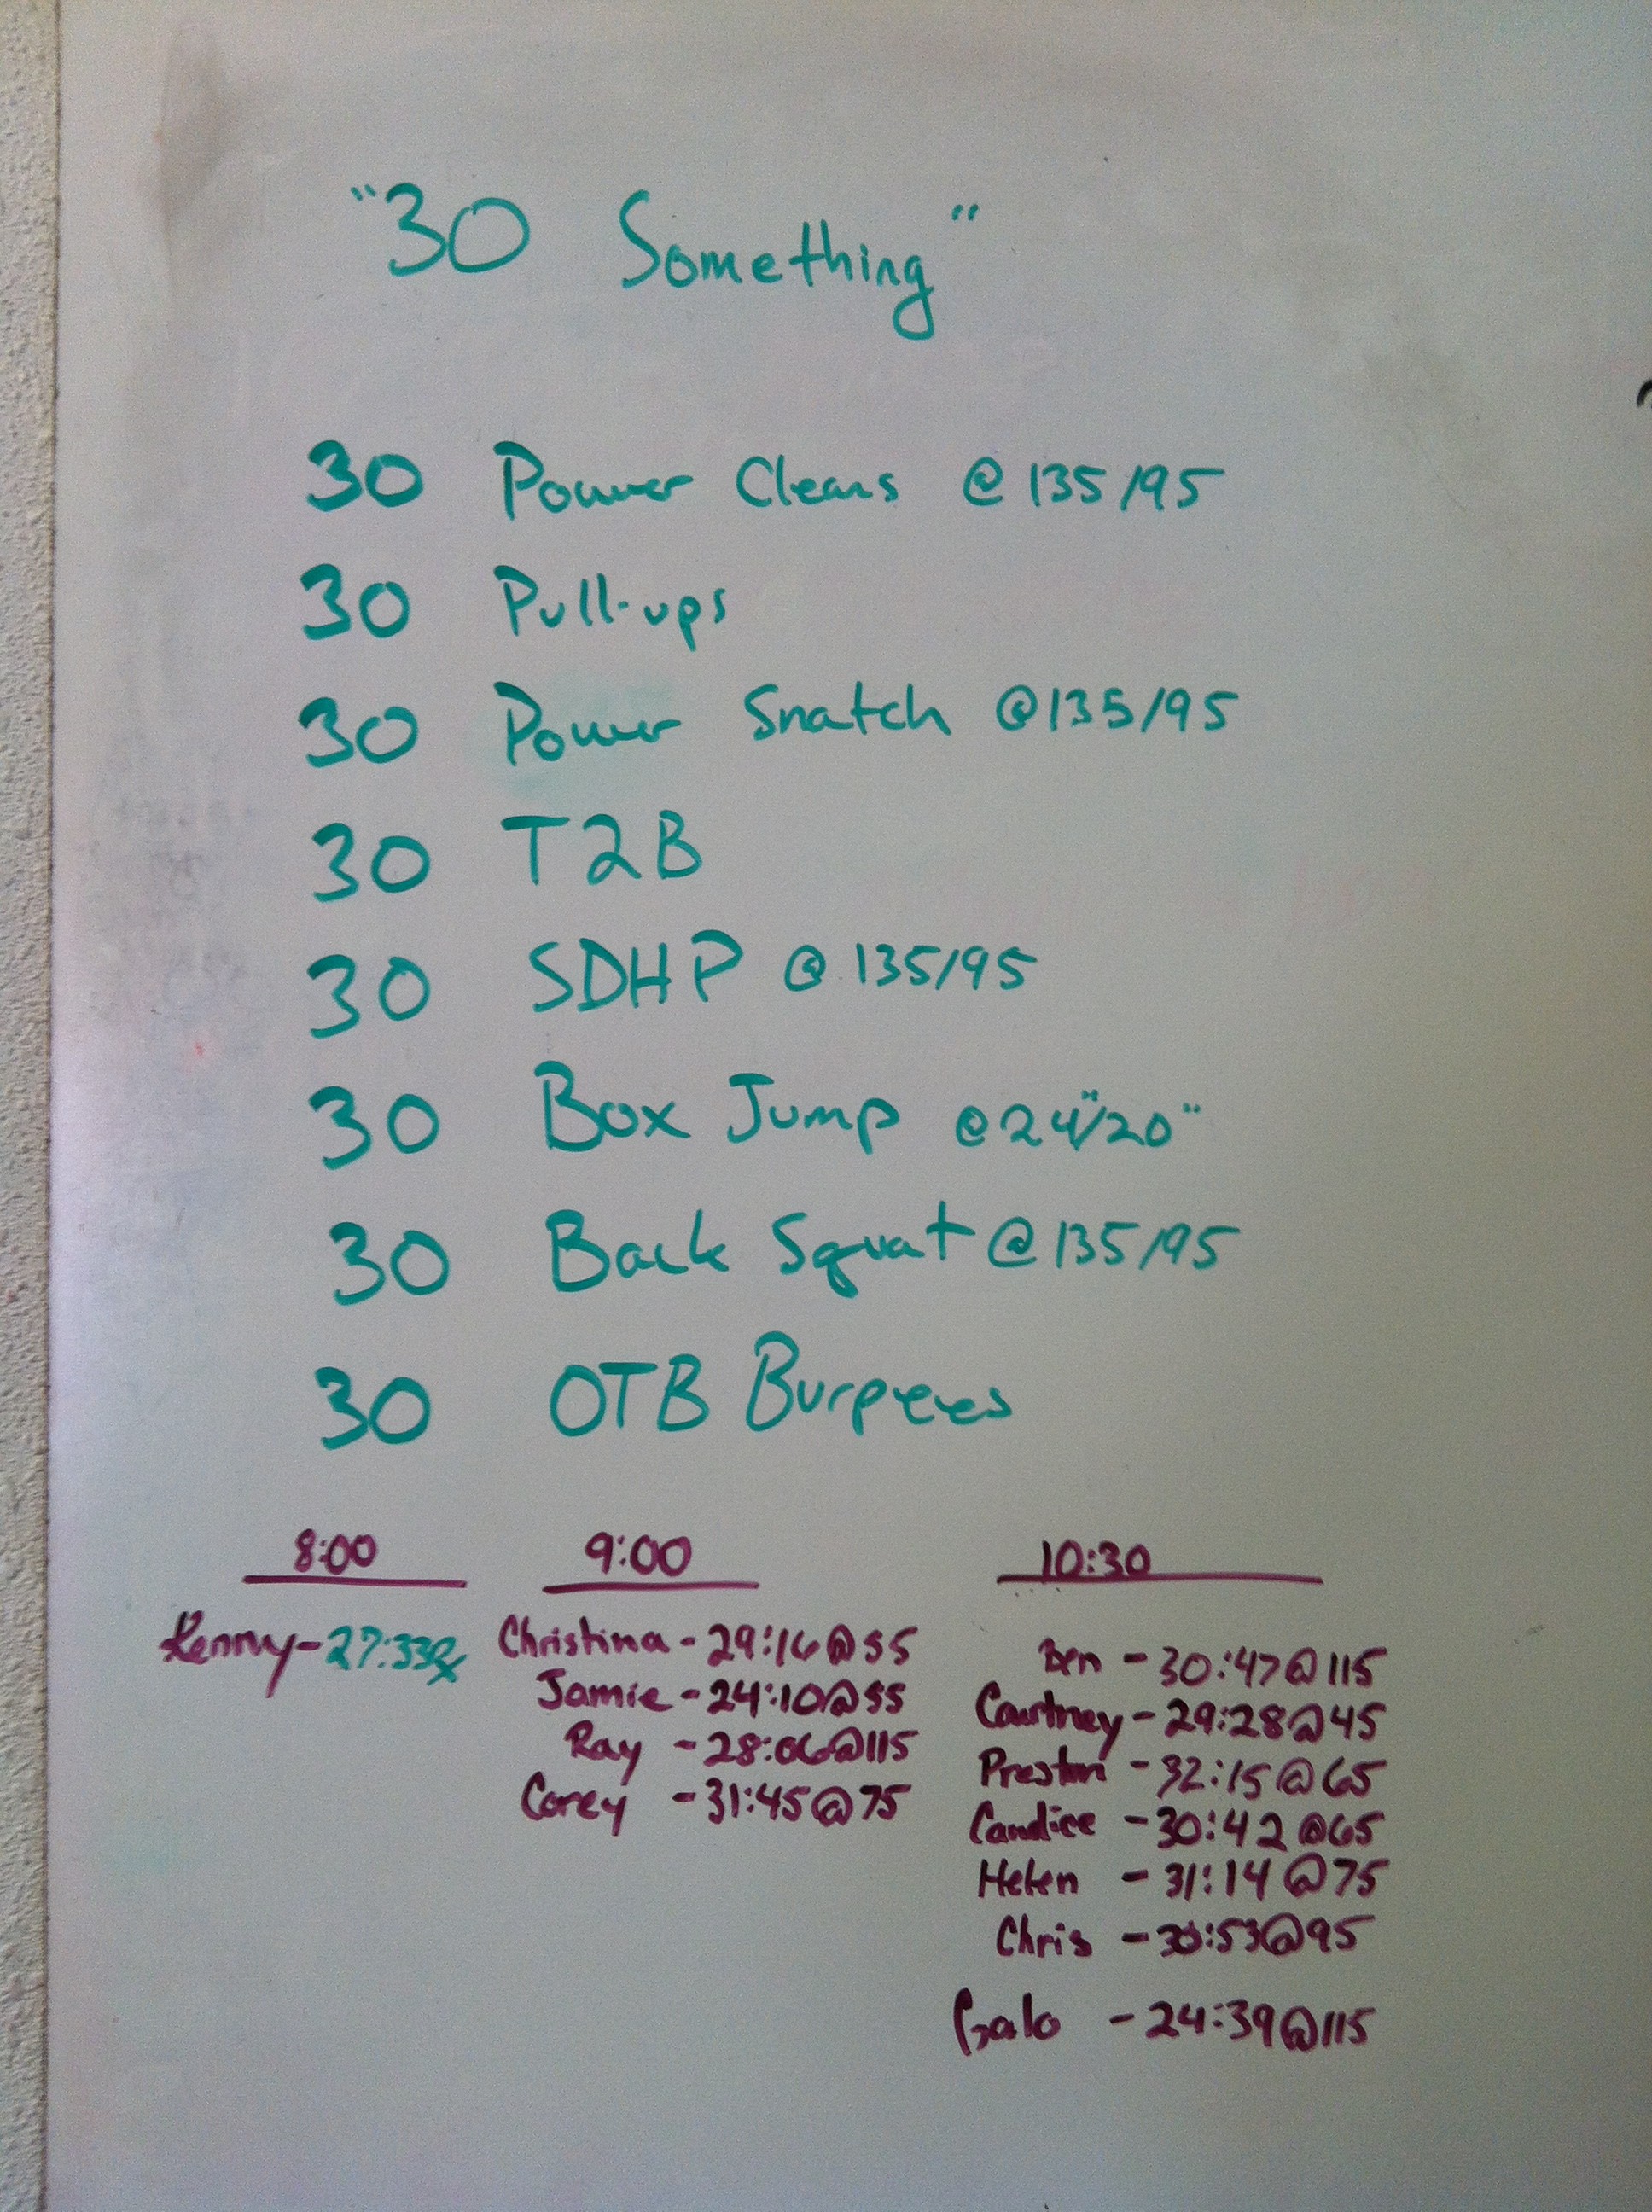 "30 Something"
30 Power Cleans @ 135/95
30 Pull-ups
30 Power Snatch @ 135/95
30 T2B
30 SDHP @ 135/95
30 Box Jump @ 24"/20"
30 Back Squat @ 135/95
30 OTB Burpees
8:00
Kenny - 27:33 Rx
9:00
Christina - 29:16 @ 55
Jamie - 24:10 @ 55
Ray - 28:06 @ 115
Corey - 31:45 @ 75
10:30
Ben - 30:47 @ 115
Courtney - 29:28 @ 45
Preston - 32:15 @ 65
Candice - 30:42 @ 65
Helen - 31:14 @ 75
Chris - 30:53 @ 95
Galo - 24:39 @ 115